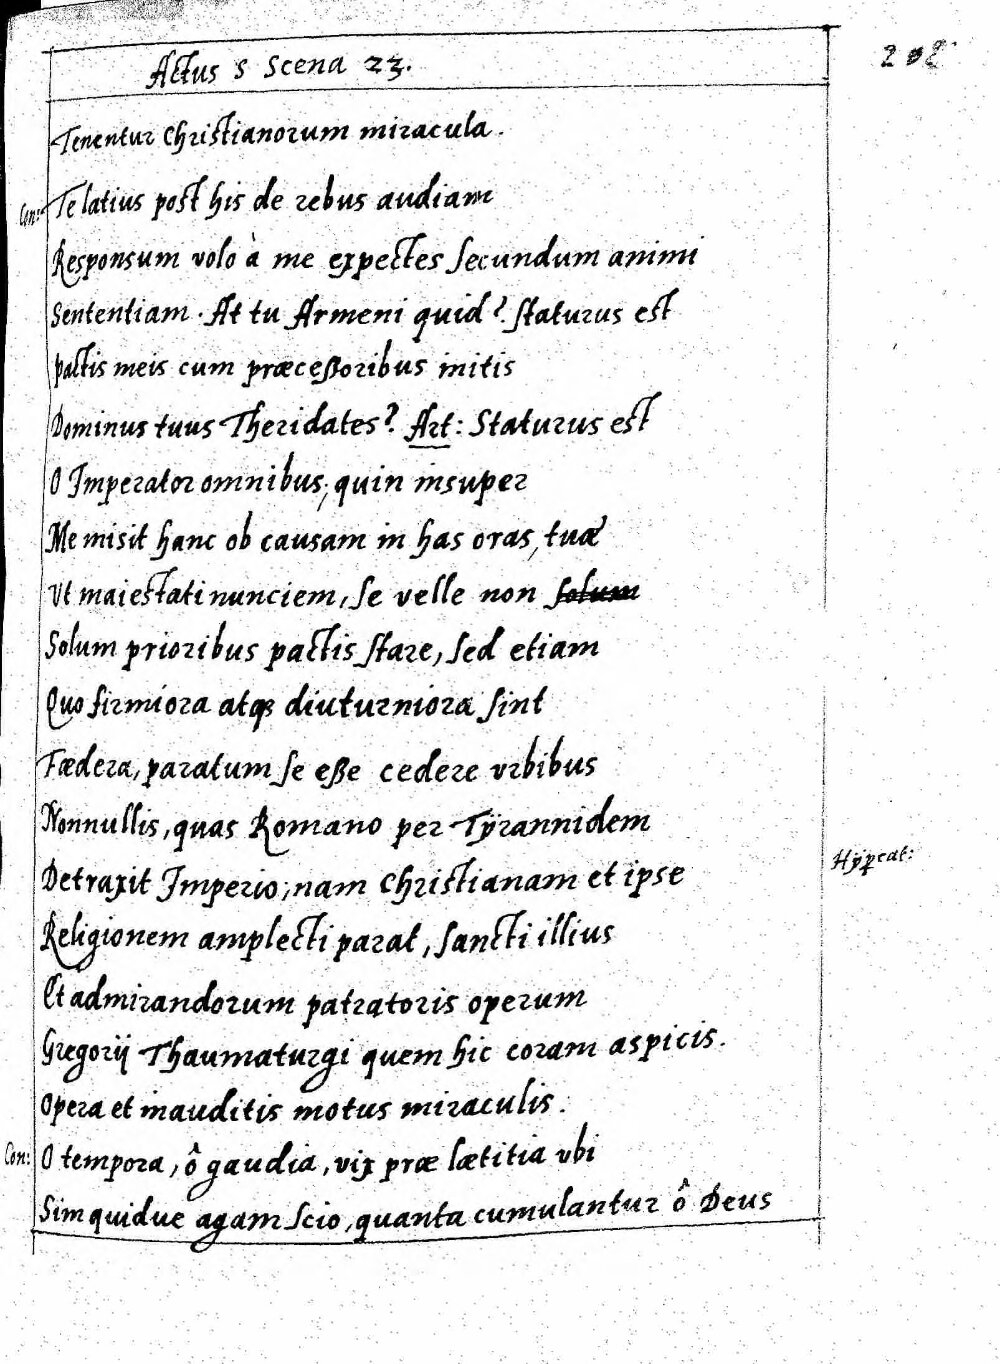 Actus 5 Scena 23.
Tenentur Christianorum miracula.
Con: Te latius post his de rebus audiam
Responsum volo à me expectes secundum animi
Sententiam. At tu Armeni quid? staturus est
pactis meis cum præcessoribus initis
Dominus tuus Theridates? Art: Staturus est
O Imperator omnibus, quin insuper
Me misit hanc ob causam in has oras, tuæ
Vt maiestati nunciem, se velle non solum
Solum prioribus pactis stare, sed etiam
Quo firmiora atq; diuturniora sint
Fœdera, paratum se esse cedere vrbibus
Nonnullis, quas Romano per Tÿrannidem
Detraxit Imperio, nam Christianam et ipse
Hÿpcat:
Religionem amplecti parat, sancti illius
Et admirandorum patratoris operum
Gregorij Thaumaturgi quem hic coram aspicis.
Opera et inauditis motus miraculis.
Con: O tempora, ô gaudia, vix præ lætitia vbi
Sim quidue agam scio, quanta cumulantur ô Deus